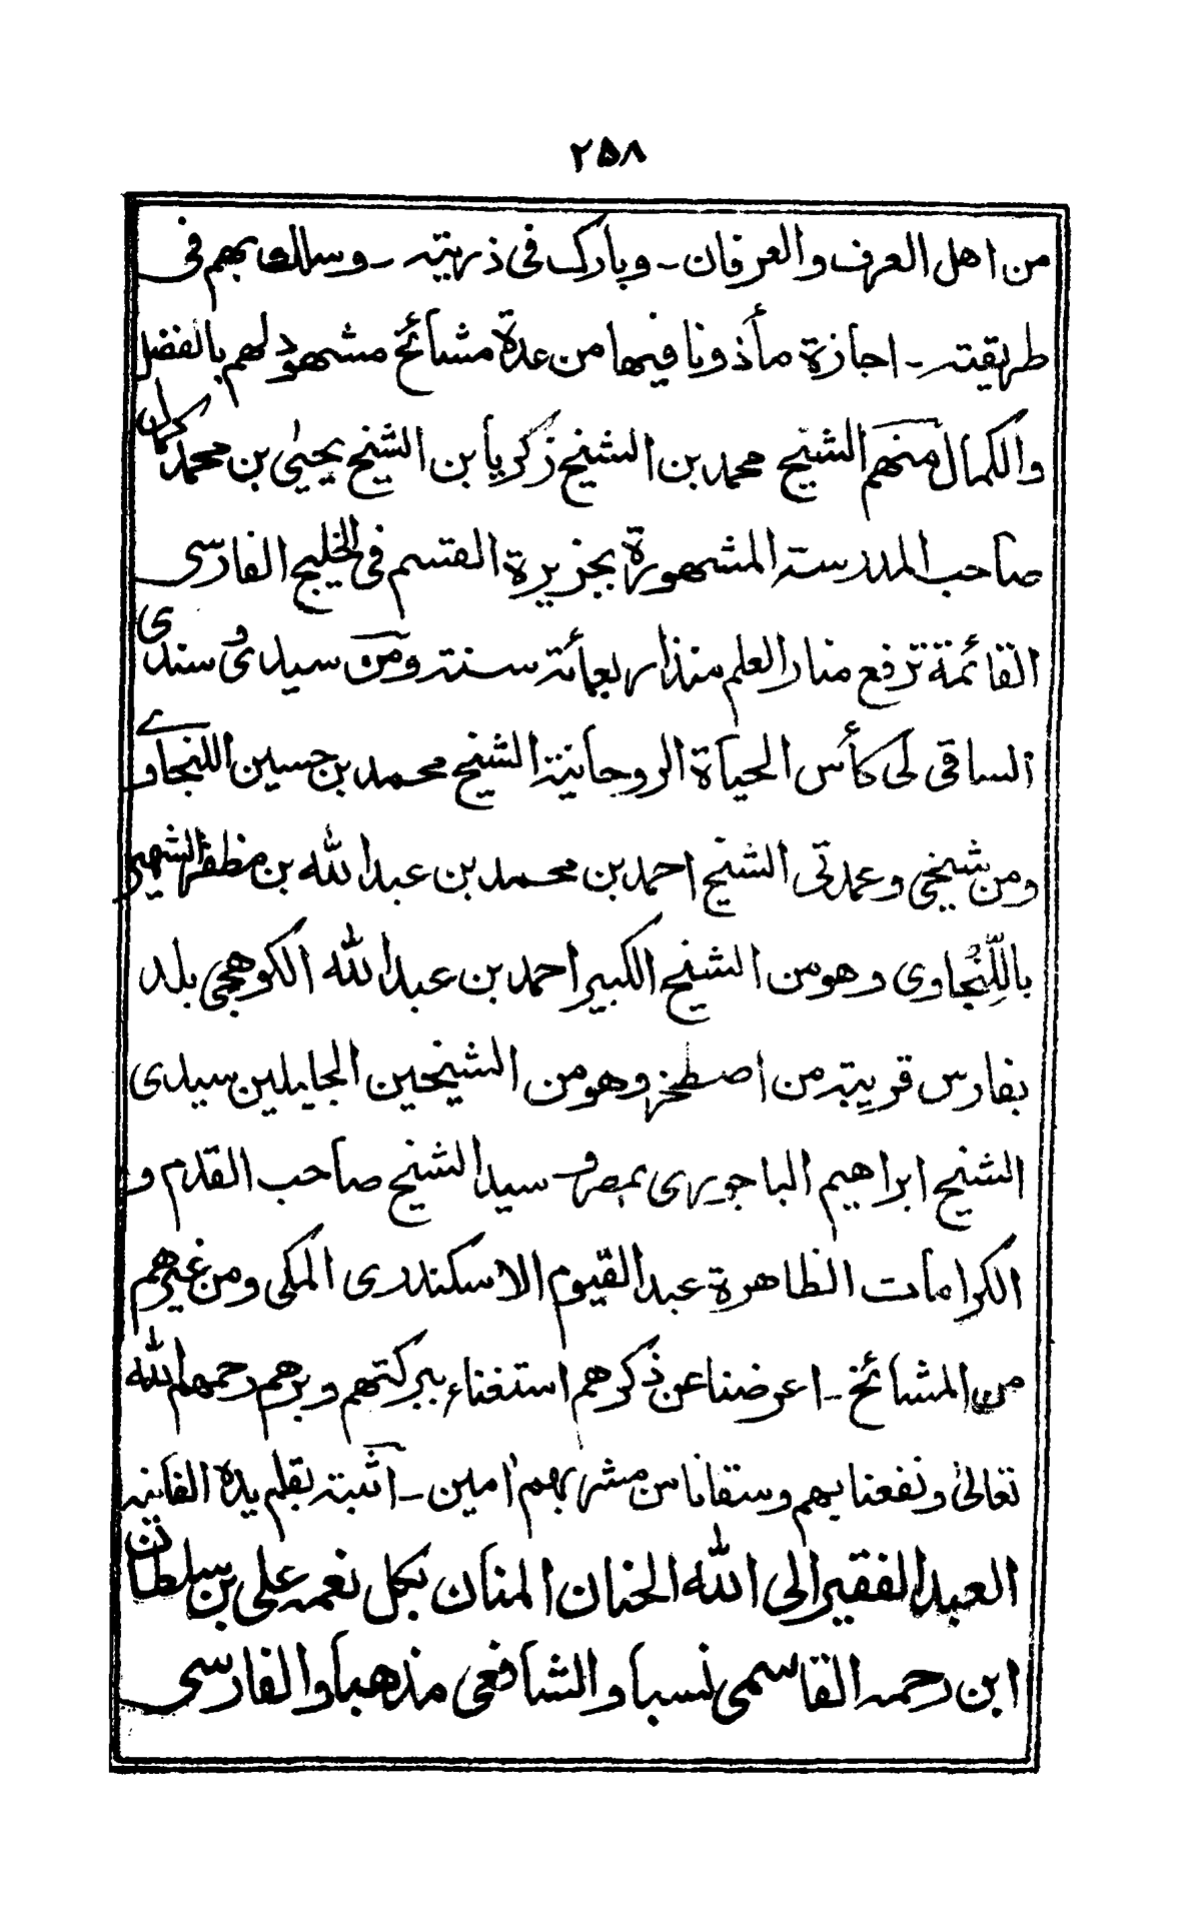 ٢٥٨
من اهل العرف والعرفان ـ وبارك فى ذريته ـ وسلك بهم فى
طريقته ـ اجازة مأذونا فيها من عدة مشائخ مشهود لهم بالفضل
والكمال منهم الشيخ محمد بن الشيخ زكريا بن الشيخ يحيٰى بن محمد كمال
صاحب المدرسته المشهورة بجزيرة القسم فى الخليج الفارسى
القائمة ترفع منار العلم منذ اربعمائة سنة ومن سيدى وسندى
الساقى لى كأس الحياة الروحانية الشيخ محمد بن حسين اللنجاوے
ومن شيخى وعمدتى الشيخ احمد بن محمد بن عبد الله بن مظفر الشهير
باللِّنْجاوى وهو من الشيخ الكبير احمد بن عبد الله الكوهجى بلد
بفارس قريبة من اصطخر وهو من الشيخين الجليلين سيدى
الشيخ ابراهيم الباجورى بمصر و سيد الشيخ صاحب القدم و
الكرامات الظاهرة عبد القيوم الاسكندرى المكى ومن غيرهم
من المشائخ ـ اعرضنا عن ذكرهم استغناء ببركتهم وبرهم رحمهم الله
تعالىٰ ونفعنا بهم وسقانا من مشربهم اٰمين ـ اثبته بقلم يده الفانيه
العبد الفقير الى الله الحنان المنان بكل نعمه على بن سلطان
ابن رحمه القاسمى نسبا والشافعى مذهبا والفارسى